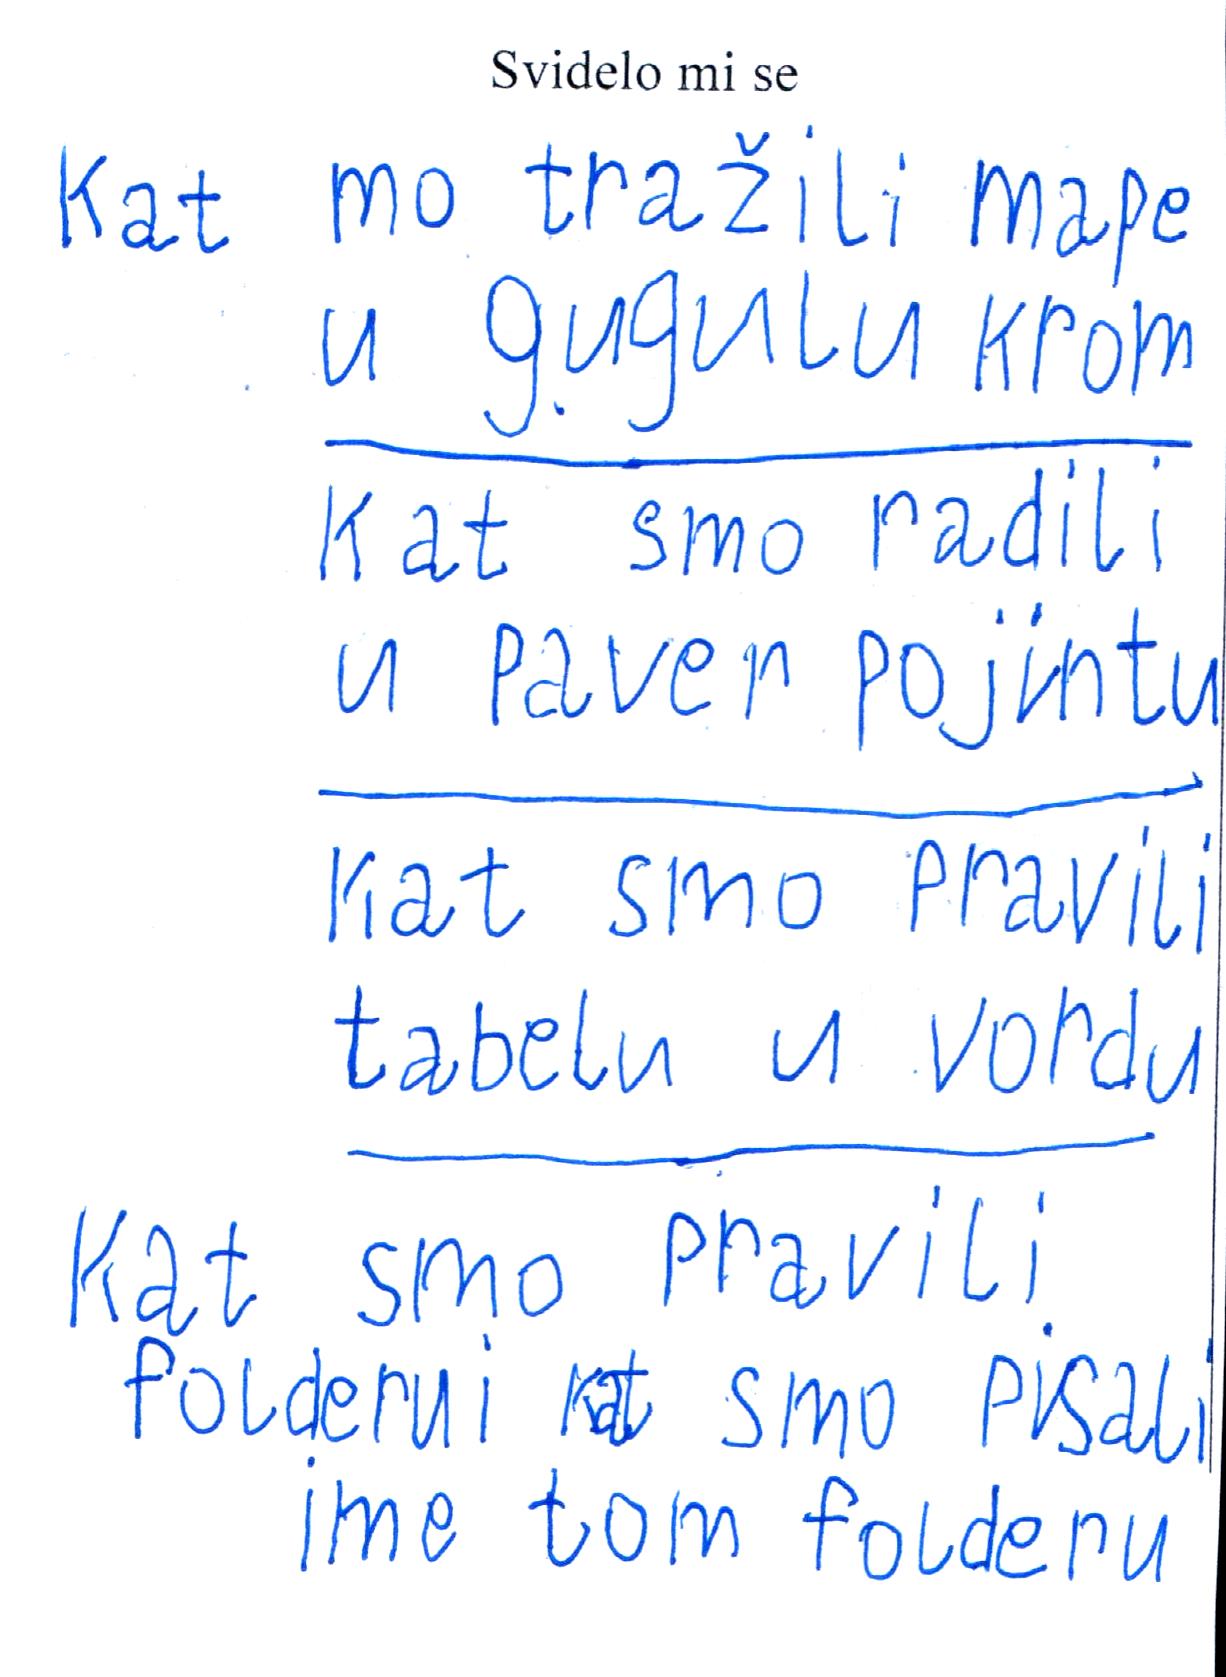 Svidelo mi se
Kat mo tražili mape
u gugulu krom
Kat smo radili
u paver pojintu
Kat smo pravili
tabelu u vordu
Kat smo pravili
folderu i kat smo pisali
ime tom folderu